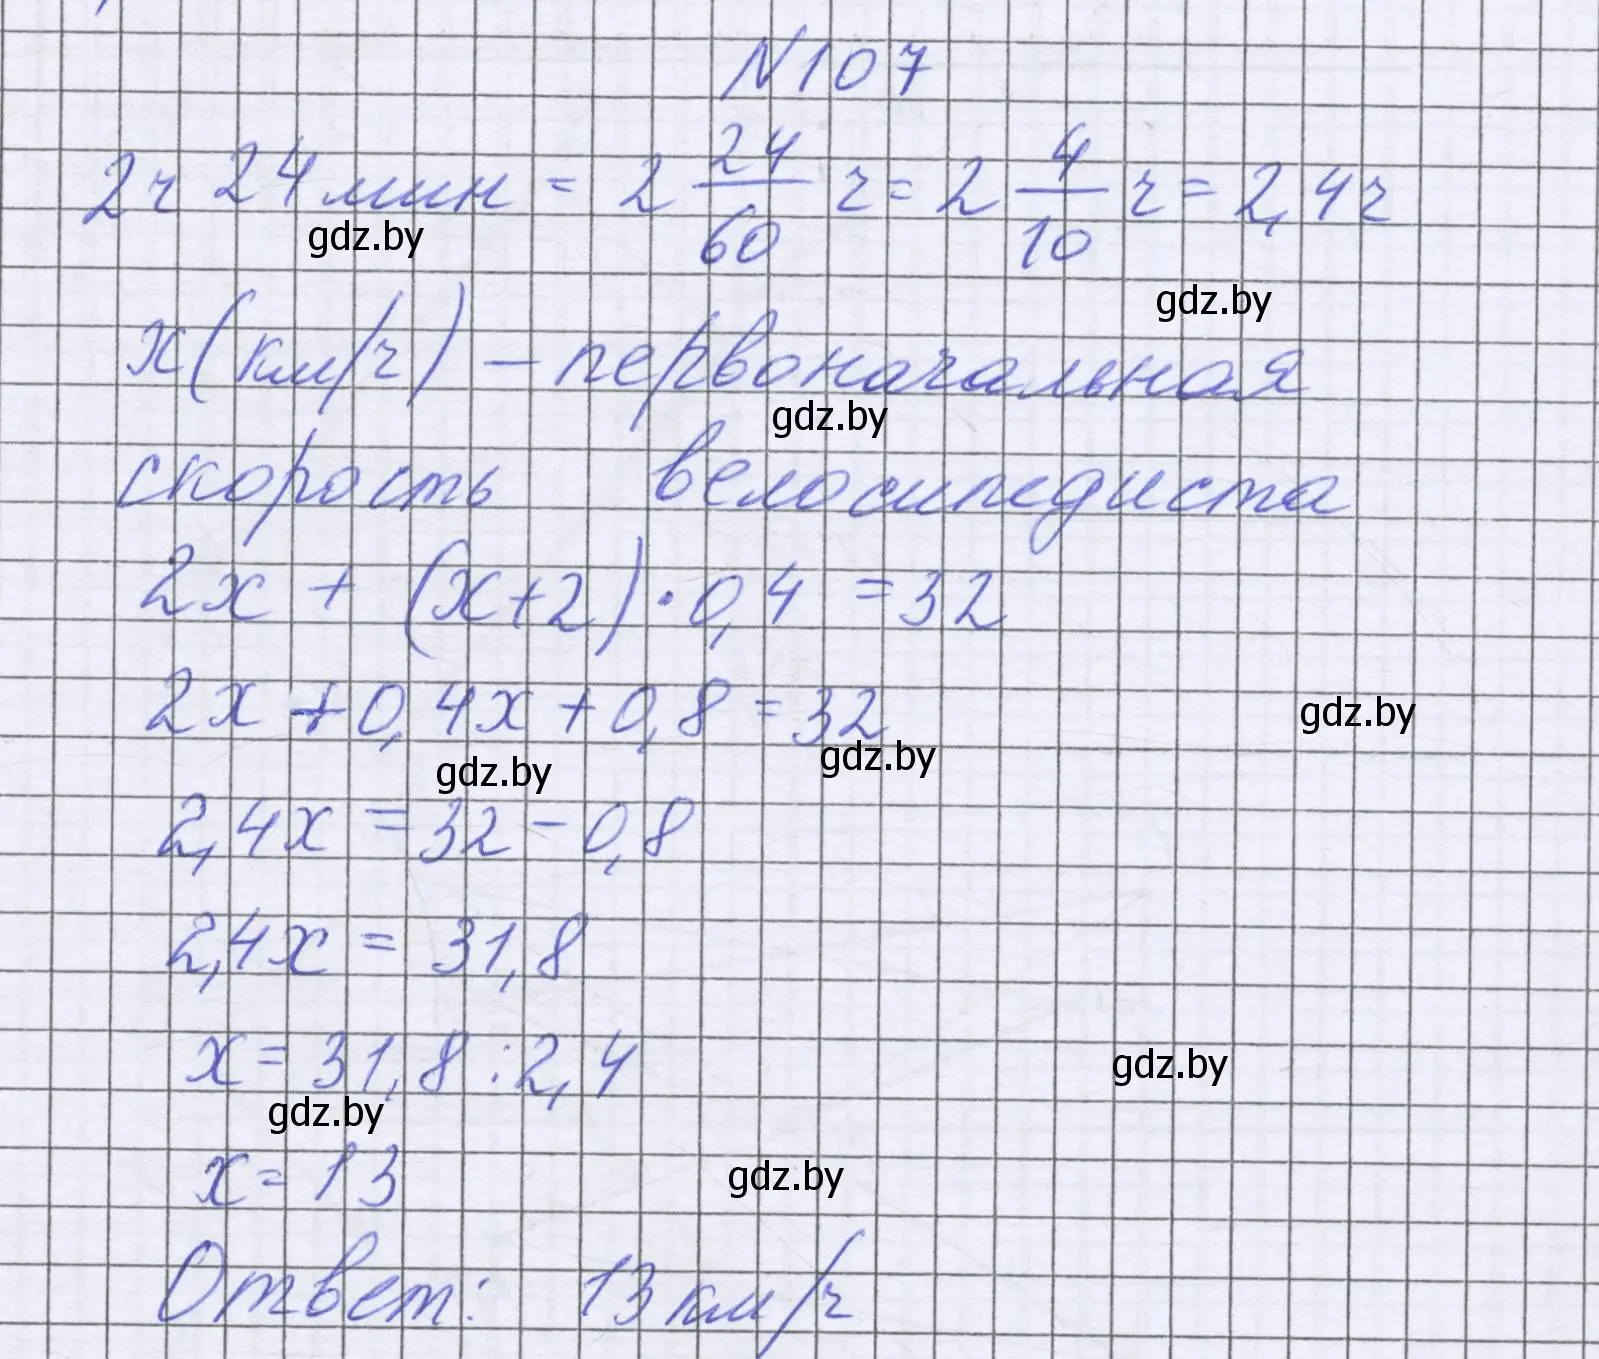 N107
2ч 24 мин = 2 24/60 ч = 2 4/10 ч = 2,4ч
gdz.by
gdz.by
x(км/ч) – первоначальная
gdz.by
скорость велосипедиста
2x + (x+2)·0,4 = 32
2x + 0,4x + 0,8 = 32
gdz.by
gdz.by
gdz.by
2,4x = 32 - 0,8
2,4x = 31,8
x = 31,8 : 2,4
gdz.by
gdz.by
x = 13
gdz.by
Ответ: 13 км/ч